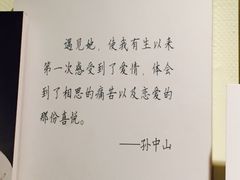 遇见她，使我有生以来
第一次感受到了爱情，体会
到了相思的痛苦以及恋爱的
那份喜悦。
——孙中山